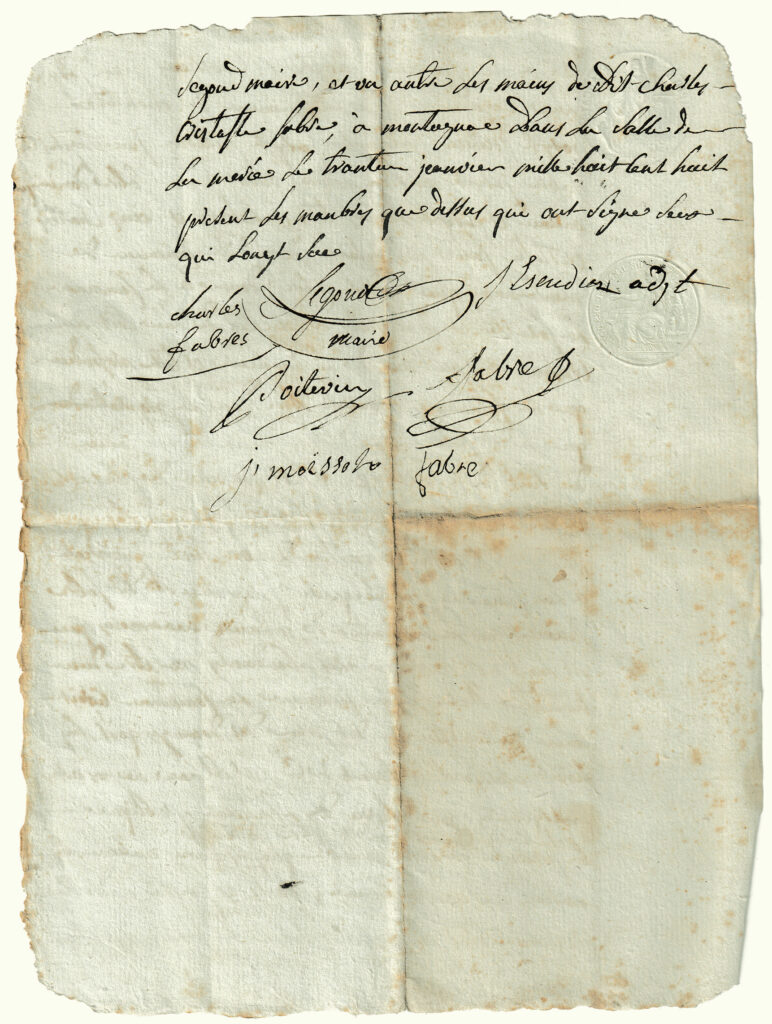 Segond maire, et un autre des mains de dit charles
fabre, à montagnac Dans La Salle de
La merie Le trantun jeanvier mille huit cent huit
présent Les manbres que dessus qui ont Signe Seux
qui Lonet Seu
charles fabres
Segond maire
J Escudier adjt
Poitevin
fabre
j moissoto
fabre